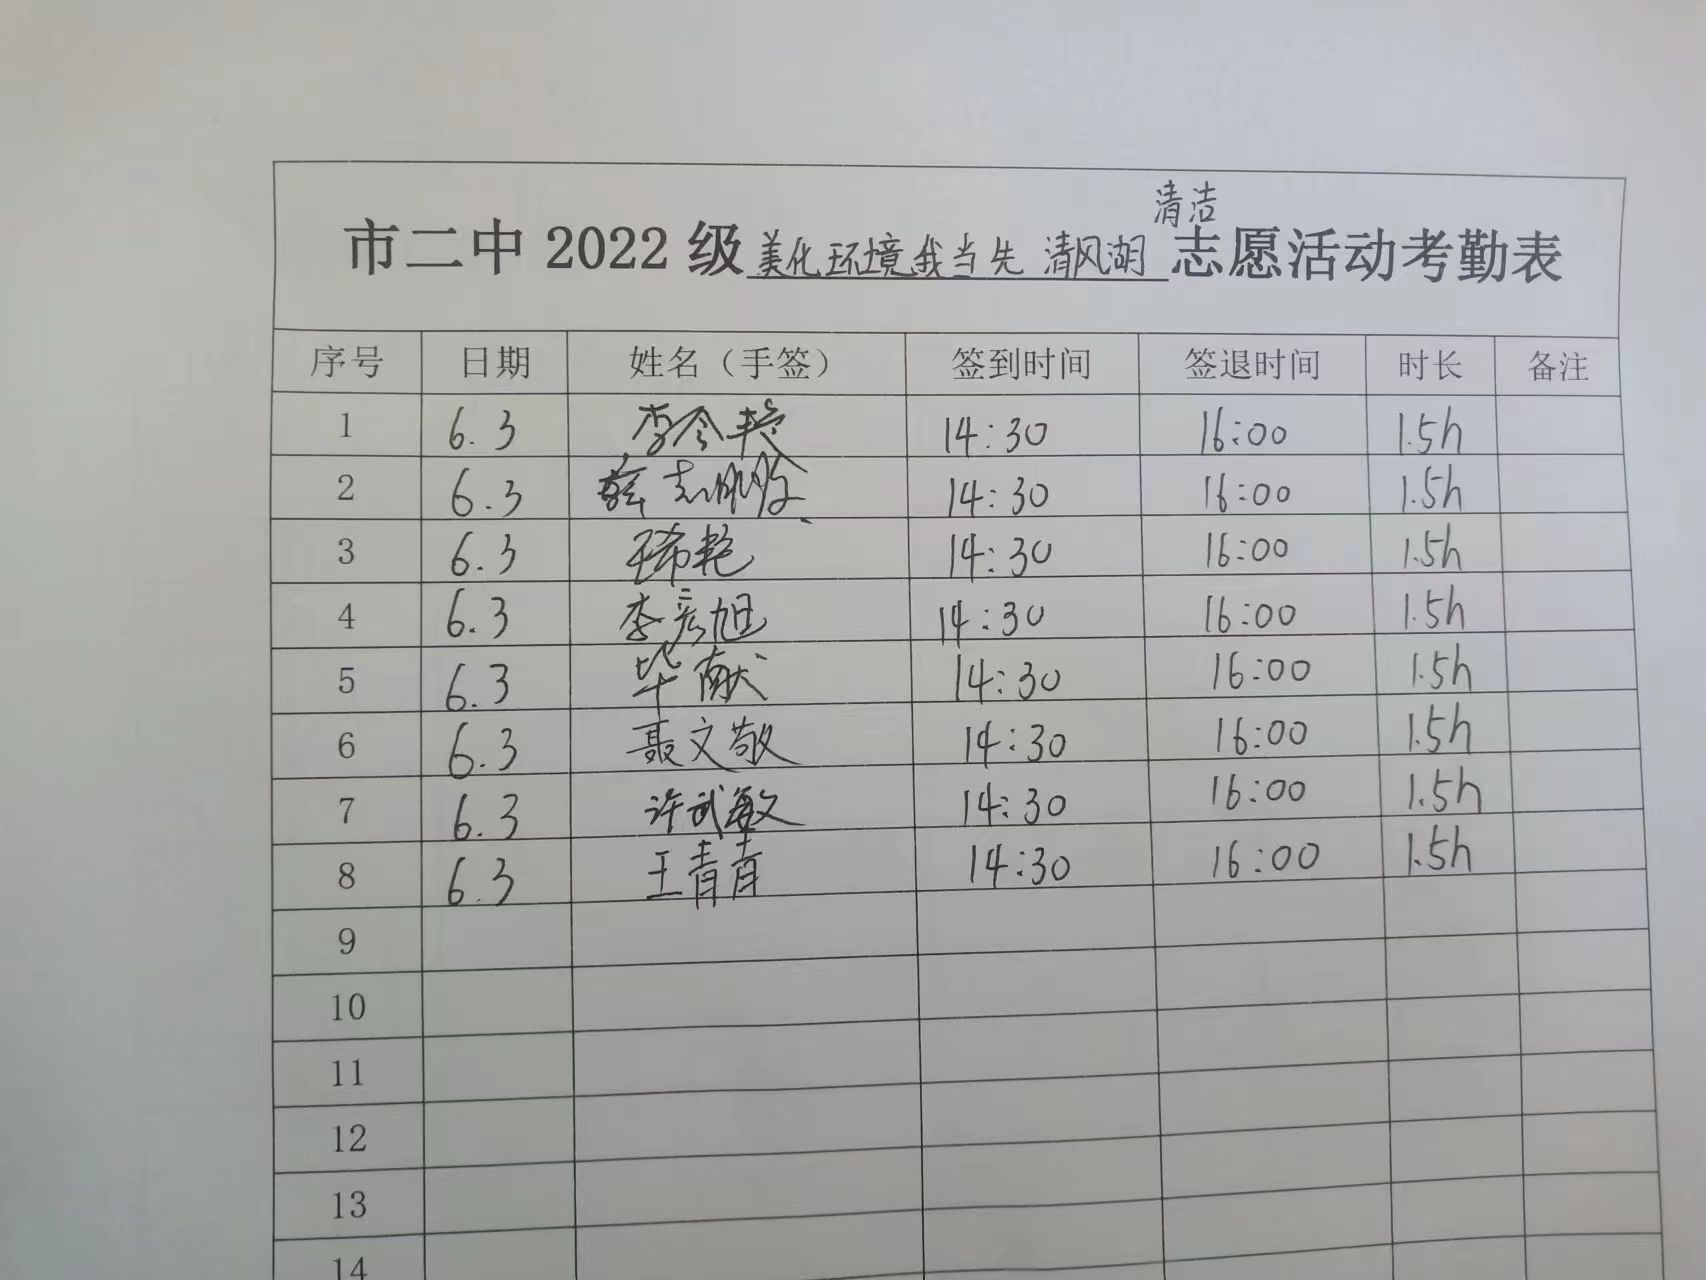 清洁
市二中 2022 级 美化环境我当先 清风湖 志愿活动考勤表
序号 日期 姓名（手签） 签到时间 签退时间 时长 备注
1 6.3 李令 14:30 16:00 1.5h
2 6.3 薛志 14:30 16:00 1.5h
3 6.3 王希艳 14:30 16:00 1.5h
4 6.3 李彦旭 14:30 16:00 1.5h
5 6.3 毕献 14:30 16:00 1.5h
6 6.3 聂文敬 14:30 16:00 1.5h
7 6.3 许武敏 14:30 16:00 1.5h
8 6.3 王青青 14:30 16:00 1.5h
9
10
11
12
13
14